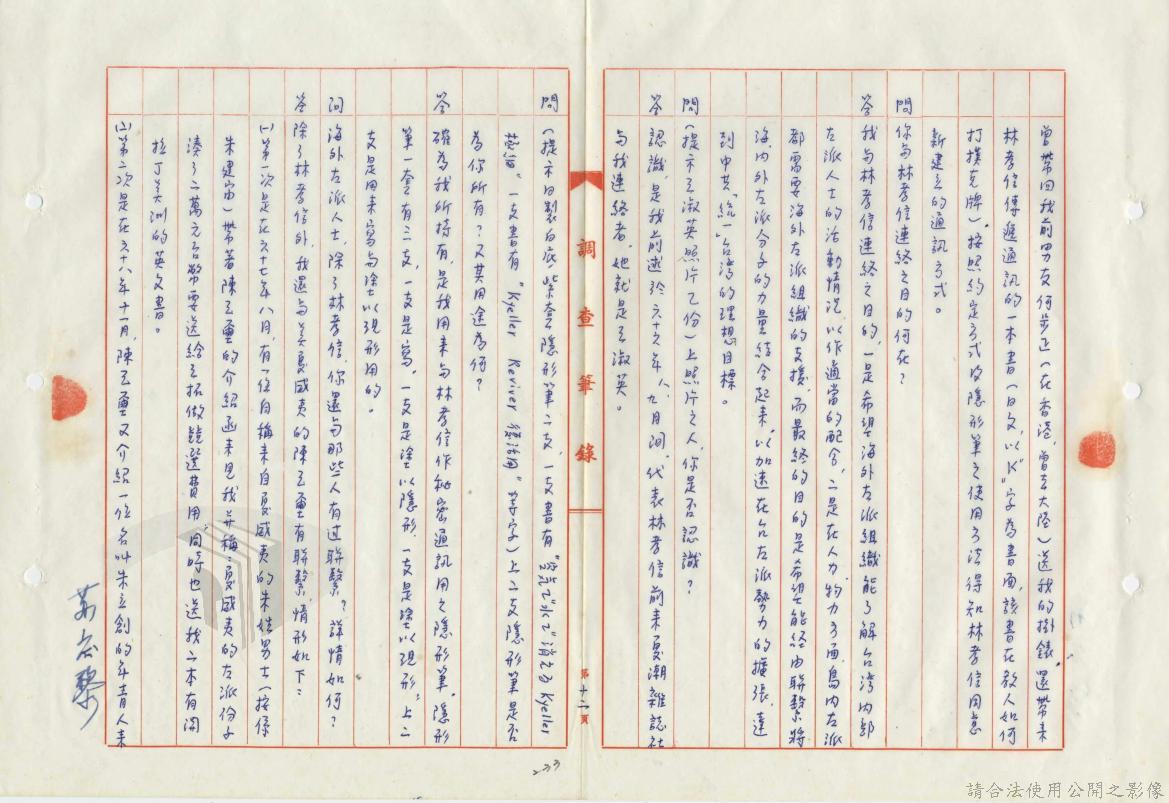 曾帶回我前男友何步正(在香港,曾去大陸)送我的手錶。還帶來
林孝信傳遞通訊的一本書(日文,以“K”字為書面,該書在教人如何
打撲克牌)。按照約定方式及隱形筆之使用方法得知林孝信用意
新建立的通訊方式。
問 你與林孝信連絡之目的何在?
答 我與林孝信連絡之目的,一是希望海外左派組織能了解台灣內部
左派人士的活動情況,以作適當的配合,二是在人力、物力方面,島內左派
都需要海外左派組織的支援,而最終的目的是希望能經由聯繫將
海內外左派分子的力量結合起來,以加速在台左派勢力的擴張,達
到中共“統一”台灣的理想目標。
問 (提示王淑英照片乙份)上照片之人,你是否認識?
答 認識,是我上前述於六十六年八、九月間,代表林孝信前來夏潮雜誌社
與我連絡者,她就是王淑英。
調查筆錄
第十二頁
問 (提示日製白底紫套隱形筆二支,一支書有 Kyeller
一支書有“Kyeller Reviver 復活用”等字)上二支隱形筆是否
為你所有?又其用途為何?
答 確為我所持有,是我用來與林孝信作秘密通訊用之隱形筆。隱形
筆一套有三支,一支是寫,一支是塗以隱形,一支是塗以現形,上二
支是用來寫與塗以現形用的。
問 海外左派人士,除了林孝信,你還與那些人有過聯繫?詳情如何?
答 除了林孝信外,我還與美夏威夷的陳玉璽有聯繫,情形如下:
(一)第一次是在六十七年八月,有一位自稱來自夏威夷的朱姓男士(按係
朱建宙)帶著陳玉璽的介紹函來見我,並稱:夏威夷的左派份子
湊了二萬元台幣要送給王拓做競選費用,同時也送我二本有關
拉丁美洲的英文書。
(二)第二次是在六十八年十一月,陳玉璽又介紹一位名叫朱立創的年青人來
蘇慶黎
233
請合法使用公開之影像